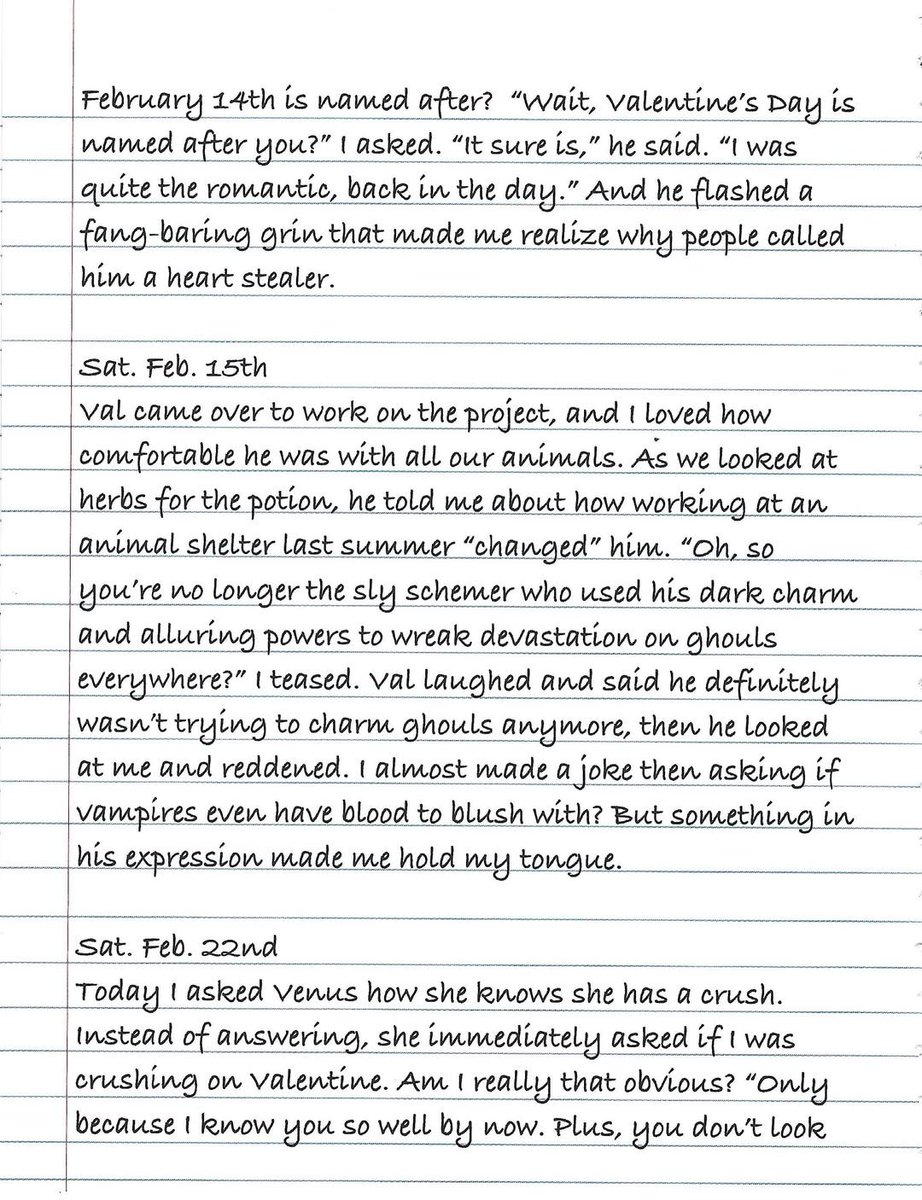 February 14th is named after?  “Wait, Valentine’s Day is
named after you?” I asked. “It sure is,” he said. “I was
quite the romantic, back in the day.” And he flashed a
fang-baring grin that made me realize why people called
him a heart stealer.
Sat. Feb. 15th
Val came over to work on the project, and I loved how
comfortable he was with all our animals. As we looked at
herbs for the potion, he told me about how working at an
animal shelter last summer “changed” him. “Oh, so
you’re no longer the sly schemer who used his dark charm
and alluring powers to wreak devastation on ghouls
everywhere?” I teased. Val laughed and said he definitely
wasn’t trying to charm ghouls anymore, then he looked
at me and reddened. I almost made a joke then asking if
vampires even have blood to blush with? But something in
his expression made me hold my tongue.
Sat. Feb. 22nd
Today I asked Venus how she knows she has a crush.
Instead of answering, she immediately asked if I was
crushing on Valentine. Am I really that obvious? “Only
because I know you so well by now. Plus, you don’t look